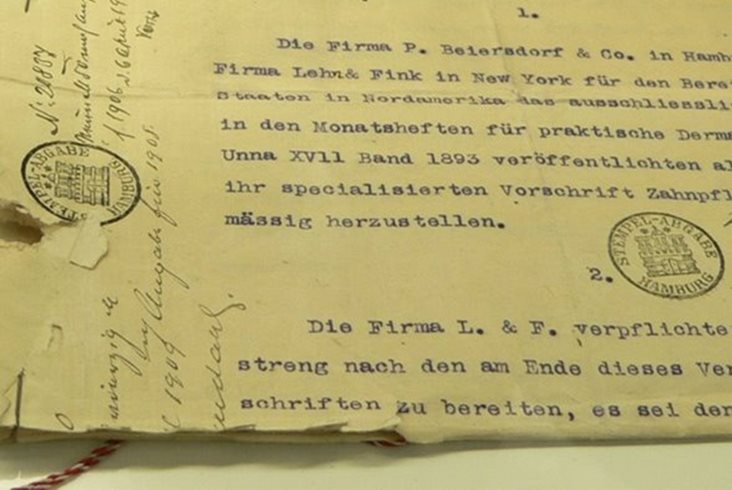 1.
Die Firma P. Beiersdorf & Co. in Hamb
Firma Lehn& Fink in New York für den Bere
Staaten in Nordamerika das ausschliessli
in den Monatsheften für praktische Derma
Unna XVll Band 1893 veröffentlichten al
ihr specialisierten Vorschrift Zahnpfl
mässig herzustellen.
2.
Die Firma L. & F. verpflichte
streng nach den am Ende dieses Ver
schriften zu bereiten, es sei den
STEMPEL-ABGABE
HAMBURG
STEMPEL-ABGABE
HAMBURG
für 1908
1909